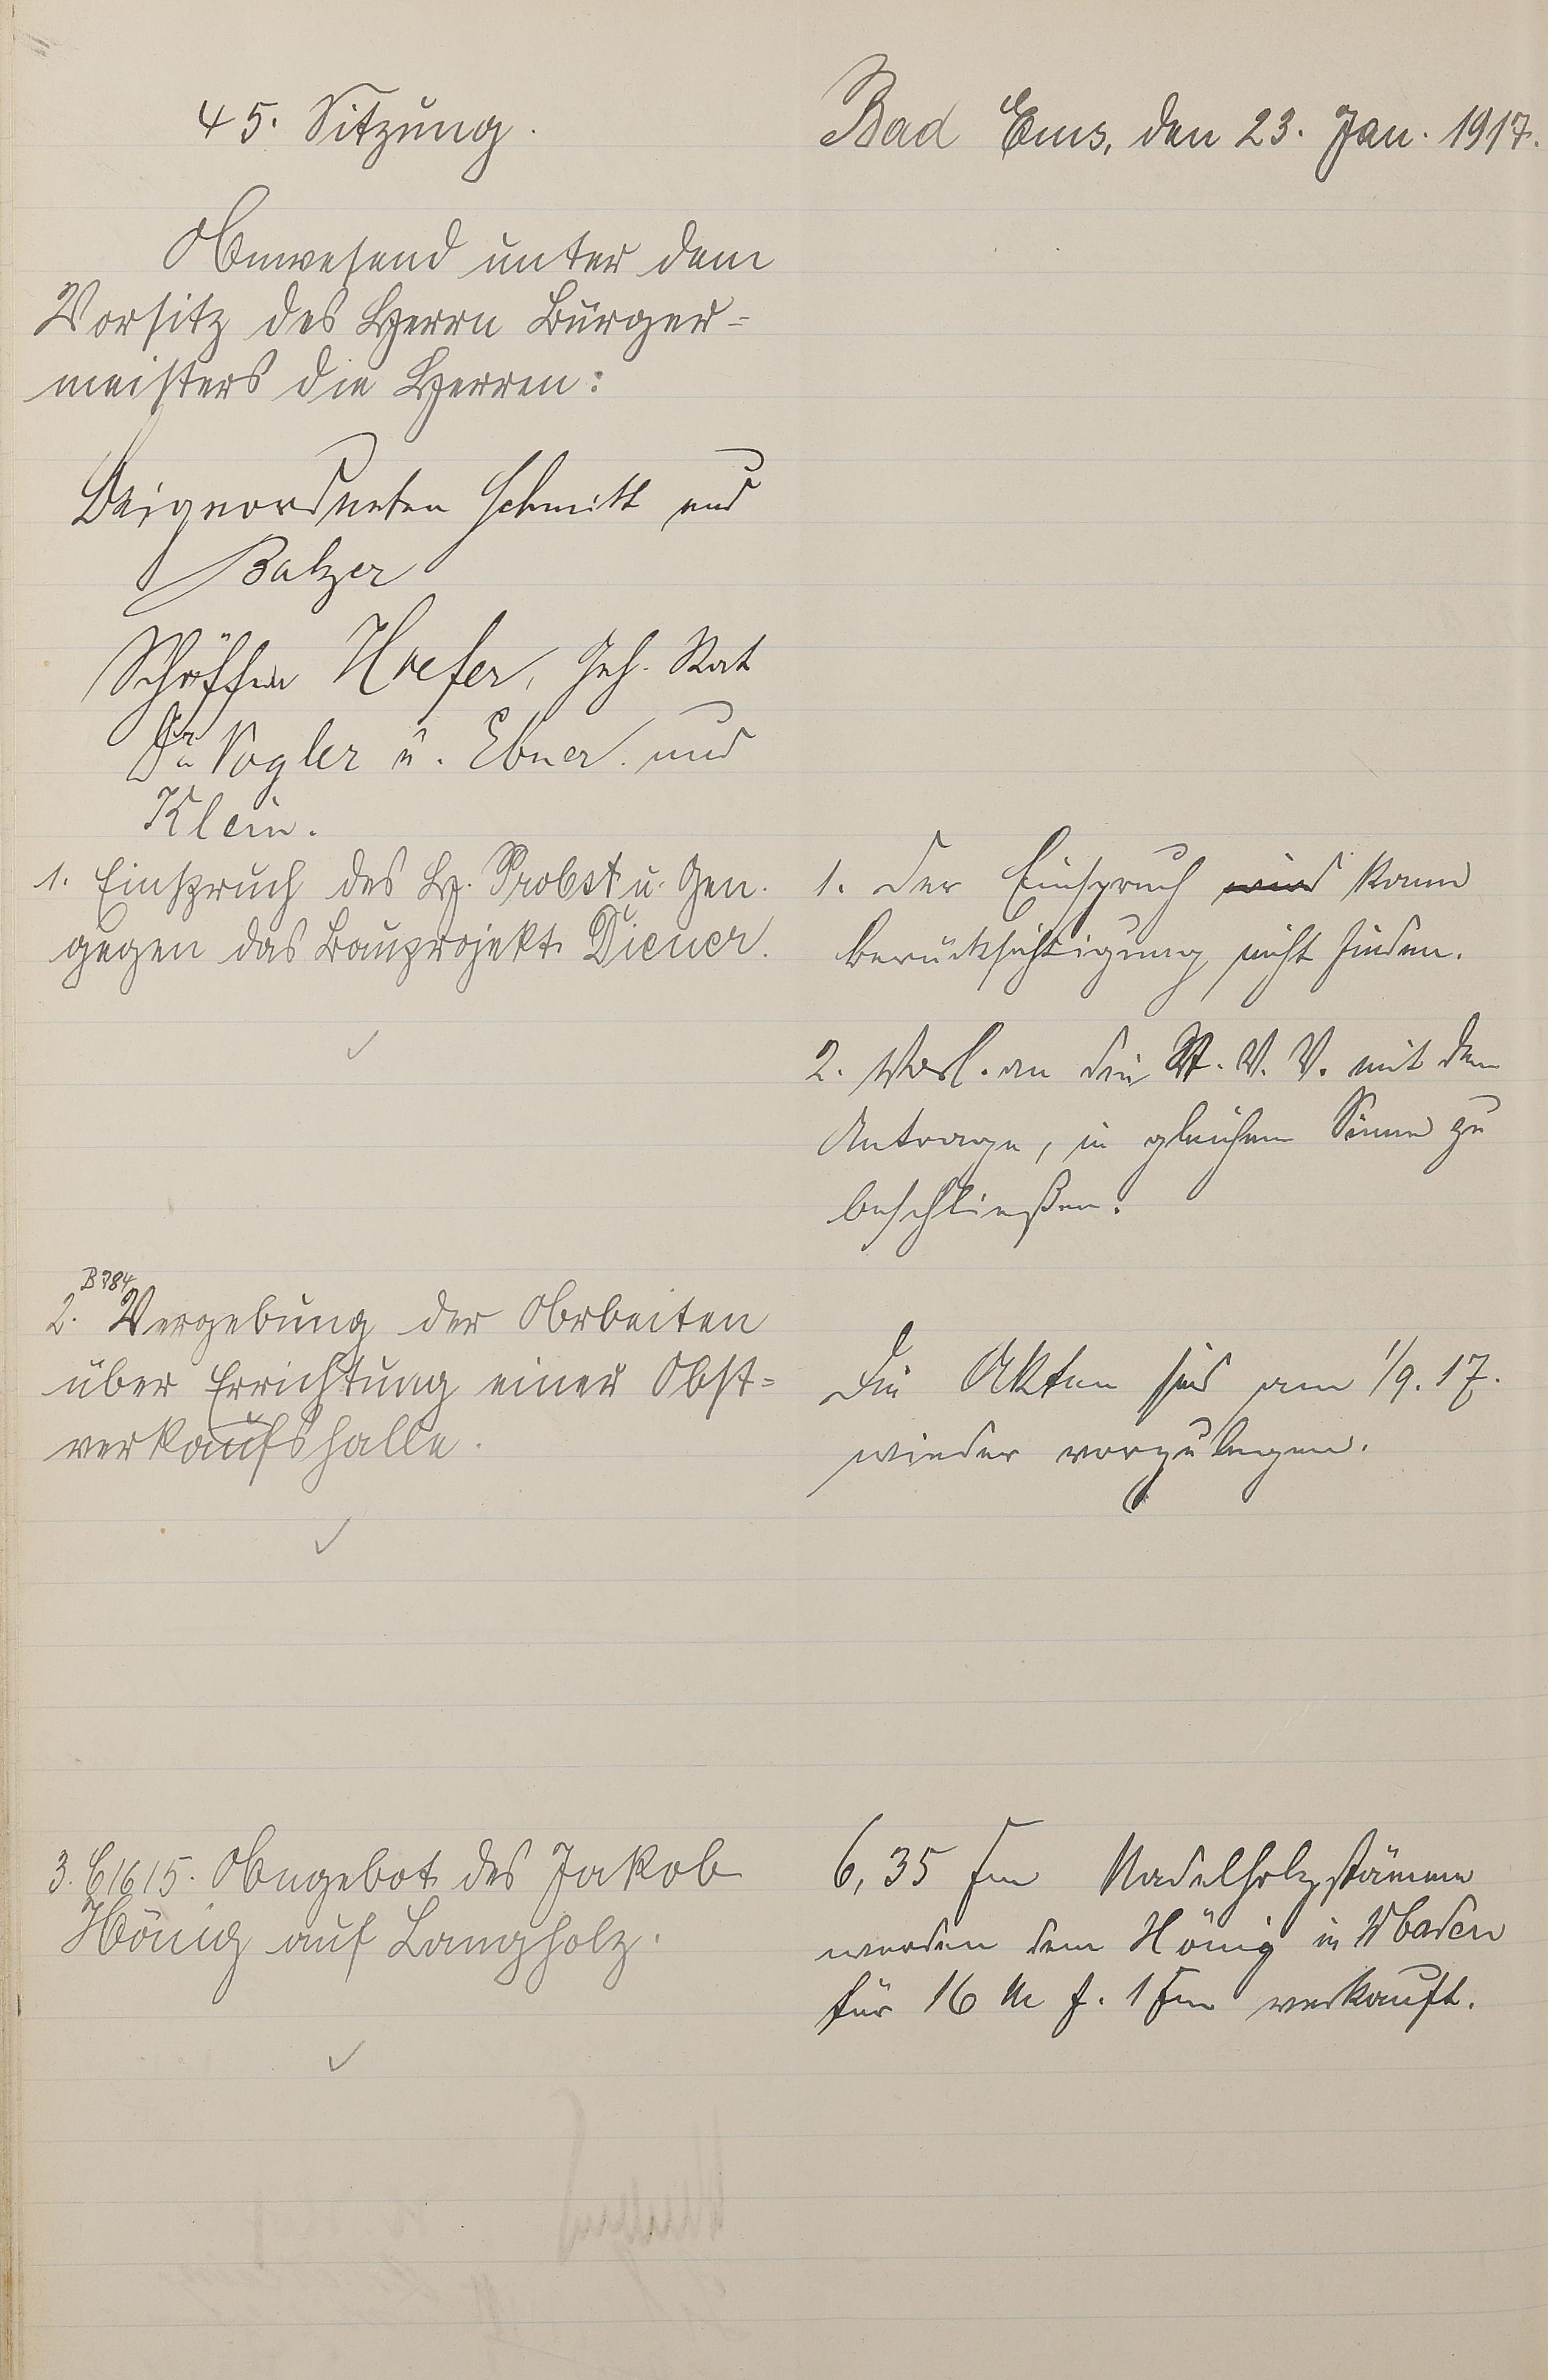 45. Sitzung.
Bad Ems, den 23. Jan. 1917.
Anwesend unter dem
Vorsitz des Herrn Bürger=
meisters die Herren:
Beigeordneten Schmitt und
Balzer
Schöffen Hoefer, Geh. Rat
Dr. Vogler u. Ebner und
Klein.
1. Einspruch des H. Probst u. Gen.
gegen das Bauprojekt Diener.
1. Der Einspruch wird kann
Berücksichtigung nicht finden.
2. Vorl. an die St. V. V. mit dem
Antrage, in gleichem Sinne zu
beschließen.
B 784
2. Vergebung der Arbeiten
über Errichtung einer Obst=
verkaufshalle.
Die Akten sind am 1/9. 17.
wieder vorzulegen.
3. C 1615. Angebot des Jakob
König auf Langholz.
6,35 fm Nadelholzstämme
werden dem König in
für 16 M f. 1 fm verkauft.